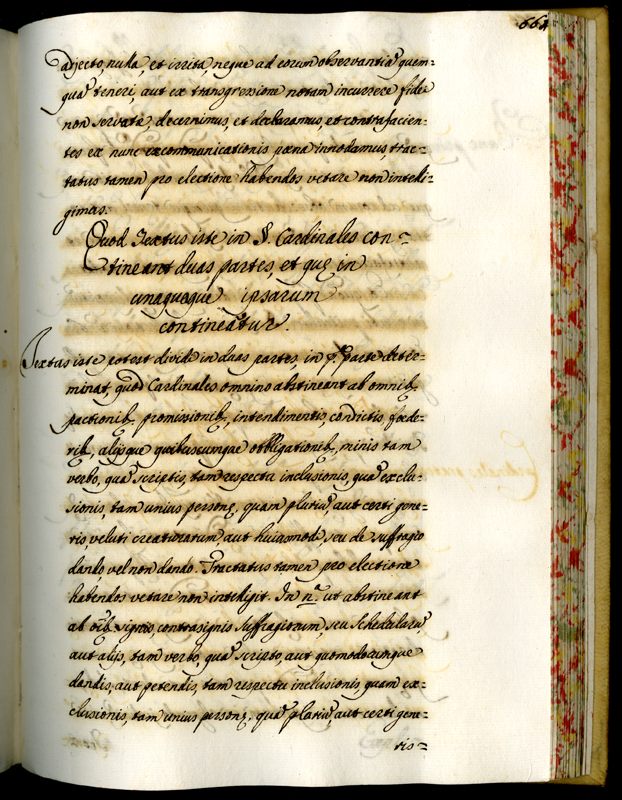 664
adjecto, nulla, et irrita, neque ad eorum observantia' quem=
qua' teneri, aut ex transgressione notam incurrere fidei
non servatæ, decernimus, et declaramus, et contrafacien=
tes ex nunc excommunicationis pœna innodamus, trac=
tatus tamen pro electione habendos vetare non intelli=
gimus.
Quod Textus iste in §. Cardinales con=
tineant duas partes, et quę in
unaquaque ipsarum
contineatur.
Textus iste potest dividi in duas partes, in pª. parte deter=
minat, quod Cardinales omnino abstineant ab omnib,
pactionib, promissionib, intendimentis, condictis, fœde=
rib, alijsque quibuscumque obbligationib, minis tam
verbo, qua' scriptis, tam respectu inclusionis, qua' exclu=
sionis, tam unius personę, quam pluriu', aut certi gene=
ris, veluti creaturarum, aut huiusmodi, seu de suffragio
dando, vel non dando. Tractatus tamen pro electione
habendos vetare non intelligit. In nª. ut abstineant
ab oib, signis, contrasignis suffragiorum, seu Schedularu',
aut alijs, tam verbo, qua' scripto, aut quomodocumque
dandis, aut petendis, tam respectu inclusionis, quam ex=
clusionis, tam unius personę, qua' pluriu', aut certi gene=
ris=